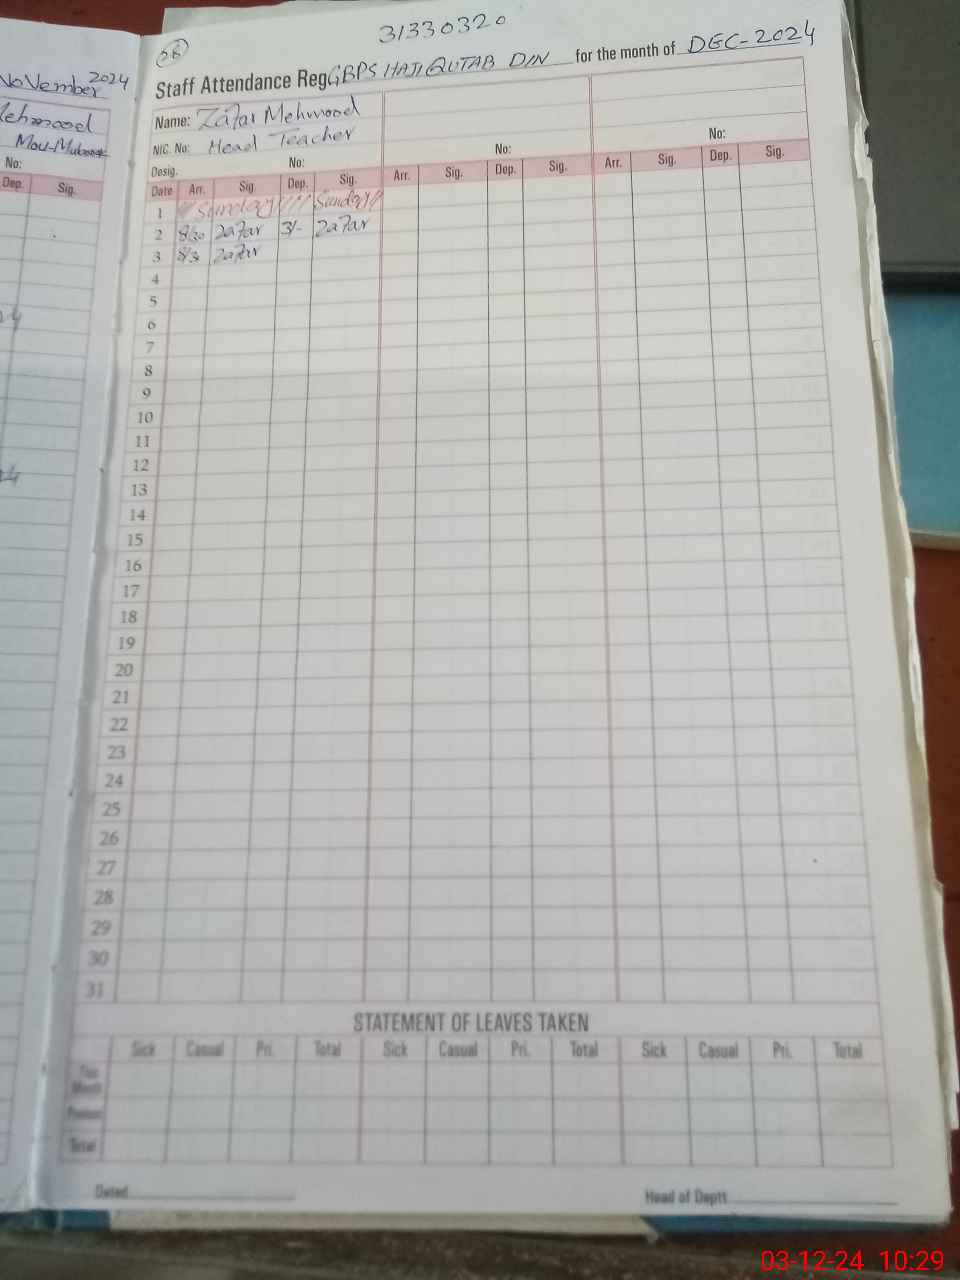 NoVember 2024
Mehmood
No:
Dep. Sig.
31330320
26
Staff Attendance Reg GBPS HAJI QUTAB DIN for the month of DEC-2024
Name: Zafar Mehmood
N/C. No: Head Teacher
Desig. No: No: No:
Date Arr. Sig. Dep. Sig. Arr. Sig. Dep. Sig. Arr. Sig. Dep. Sig.
1 Sunday Sunday
2 8/30 Zafar 3/- Zafar
3 8/30 Zafar
4
5
6
7
8
9
10
11
12
13
14
15
16
17
18
19
20
21
22
23
24
25
26
27
28
29
30
31
STATEMENT OF LEAVES TAKEN
Sick Casual Pri. Total Sick Casual Pri. Total Sick Casual Pri. Total
Month
Total
Dated
Head of Deptt
03-12-24 10:29